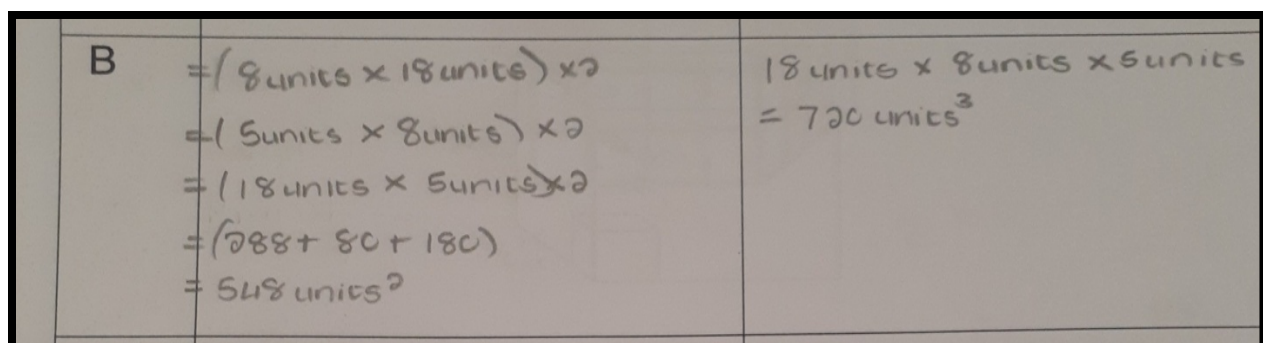 B
=(8units × 18units) ×2
=(5units × 8units) ×2
=(18units × 5units)×2
=(288+ 80+ 180)
= 548 units²
18 units × 8units ×5units
= 720 units³